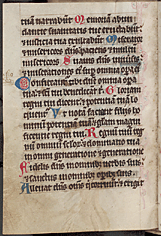 tuam narrabunt Memoriam abun
dantie suavitatis tue eructabunt
et iusticia tua exultabunt Miserator
et misericors dns paciens et multum
misericors Suavis dns univsis
et miserationes eius sup omnia opa
Confiteantur tibi dne omnia opa
tua et sci tui benedicant t Gloriam
regni tui dicent et potentiam tuam lo
quentur Ut notam faciant filiis ho
minum potentiam tuam et gloriam magni
regni tui Regnum tuum reg
num omnium seclorum et dominatio tua
in omni generatione et generatione
Fidelis dns in omnibus verbis suis
et sanctus in omnibus opibus suis
Allevat dns oms qui corruunt et erigit